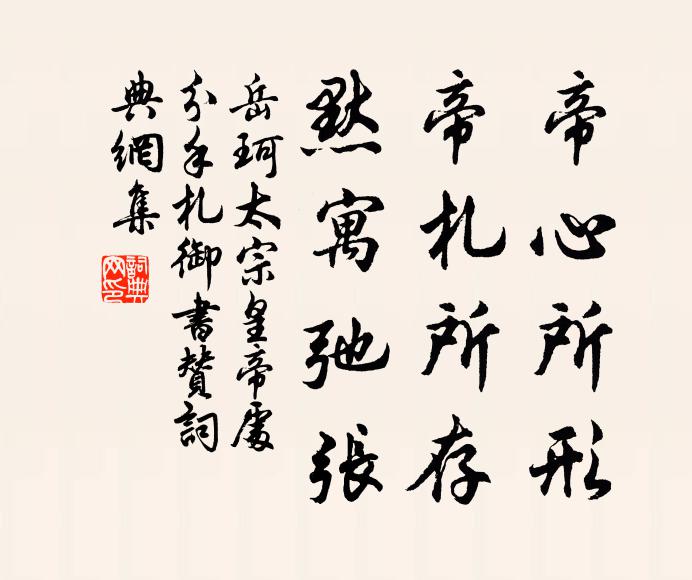 帝心所形
帝札所存
默寓弛張
岳珂太宗皇帝處
分手札御書贊詞
典網集
詞典网印